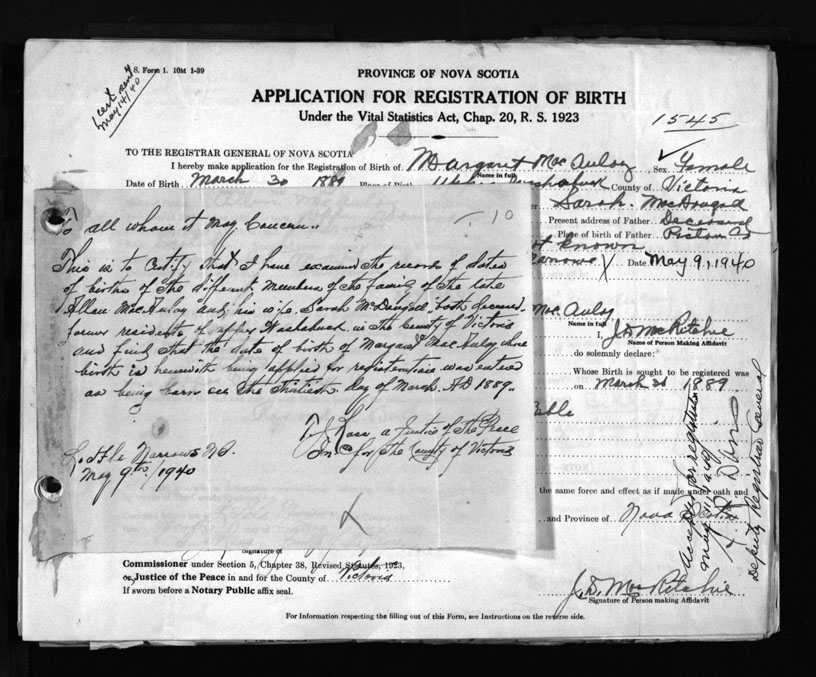 S. Form 1. 10M 1-39
cert sent
May 14/40
PROVINCE OF NOVA SCOTIA
APPLICATION FOR REGISTRATION OF BIRTH
Under the Vital Statistics Act, Chap. 20, R. S. 1923
1545
TO THE REGISTRAR GENERAL OF NOVA SCOTIA
I hereby make application for the Registration of Birth of Margaret MacAulay Sex Female
Name in full
Date of Birth March 30 1889 Place of Birth Washabuck County of Victoria
Sarah MacDougall
Present address of Father Deceased
Place of birth of Father Pictou Co
not known
Narrows X Date May 9, 1940
MacAulay
Name in full
I, J D MacRitchie
Name of Person Making Affidavit
do solemnly declare:
Whose Birth is sought to be registered was
on March 30 1889
the same force and effect as if made under oath and
and Province of Nova Scotia
Accepted for registration
May 11/1940
Deputy Registrar General
To all whom it May Concern,
- 10
This is to Certify that I have examined the records of dates
of births of the different members of the family of the late
Allan MacAulay and his wife Sarah McDougall, both deceased,
former residents of upper Washabuck in the County of Victoria
and find that the date of birth of Margaret MacAulay whose
birth is herewith being applied for registration was entered
as being born on the thirtieth day of March AD 1889.
Ross a Justice of the Peace
In & for the County of Victoria
Little Narrows N.S.
May 9th, 1940
X
Signature of
Commissioner under Section 5, Chapter 38, Revised Statutes, 1923,
or, Justice of the Peace in and for the County of Victoria
If sworn before a Notary Public affix seal.
J. D. MacRitchie
Signature of Person making Affidavit
For Information respecting the filling out of this Form, see Instructions on the reverse side.